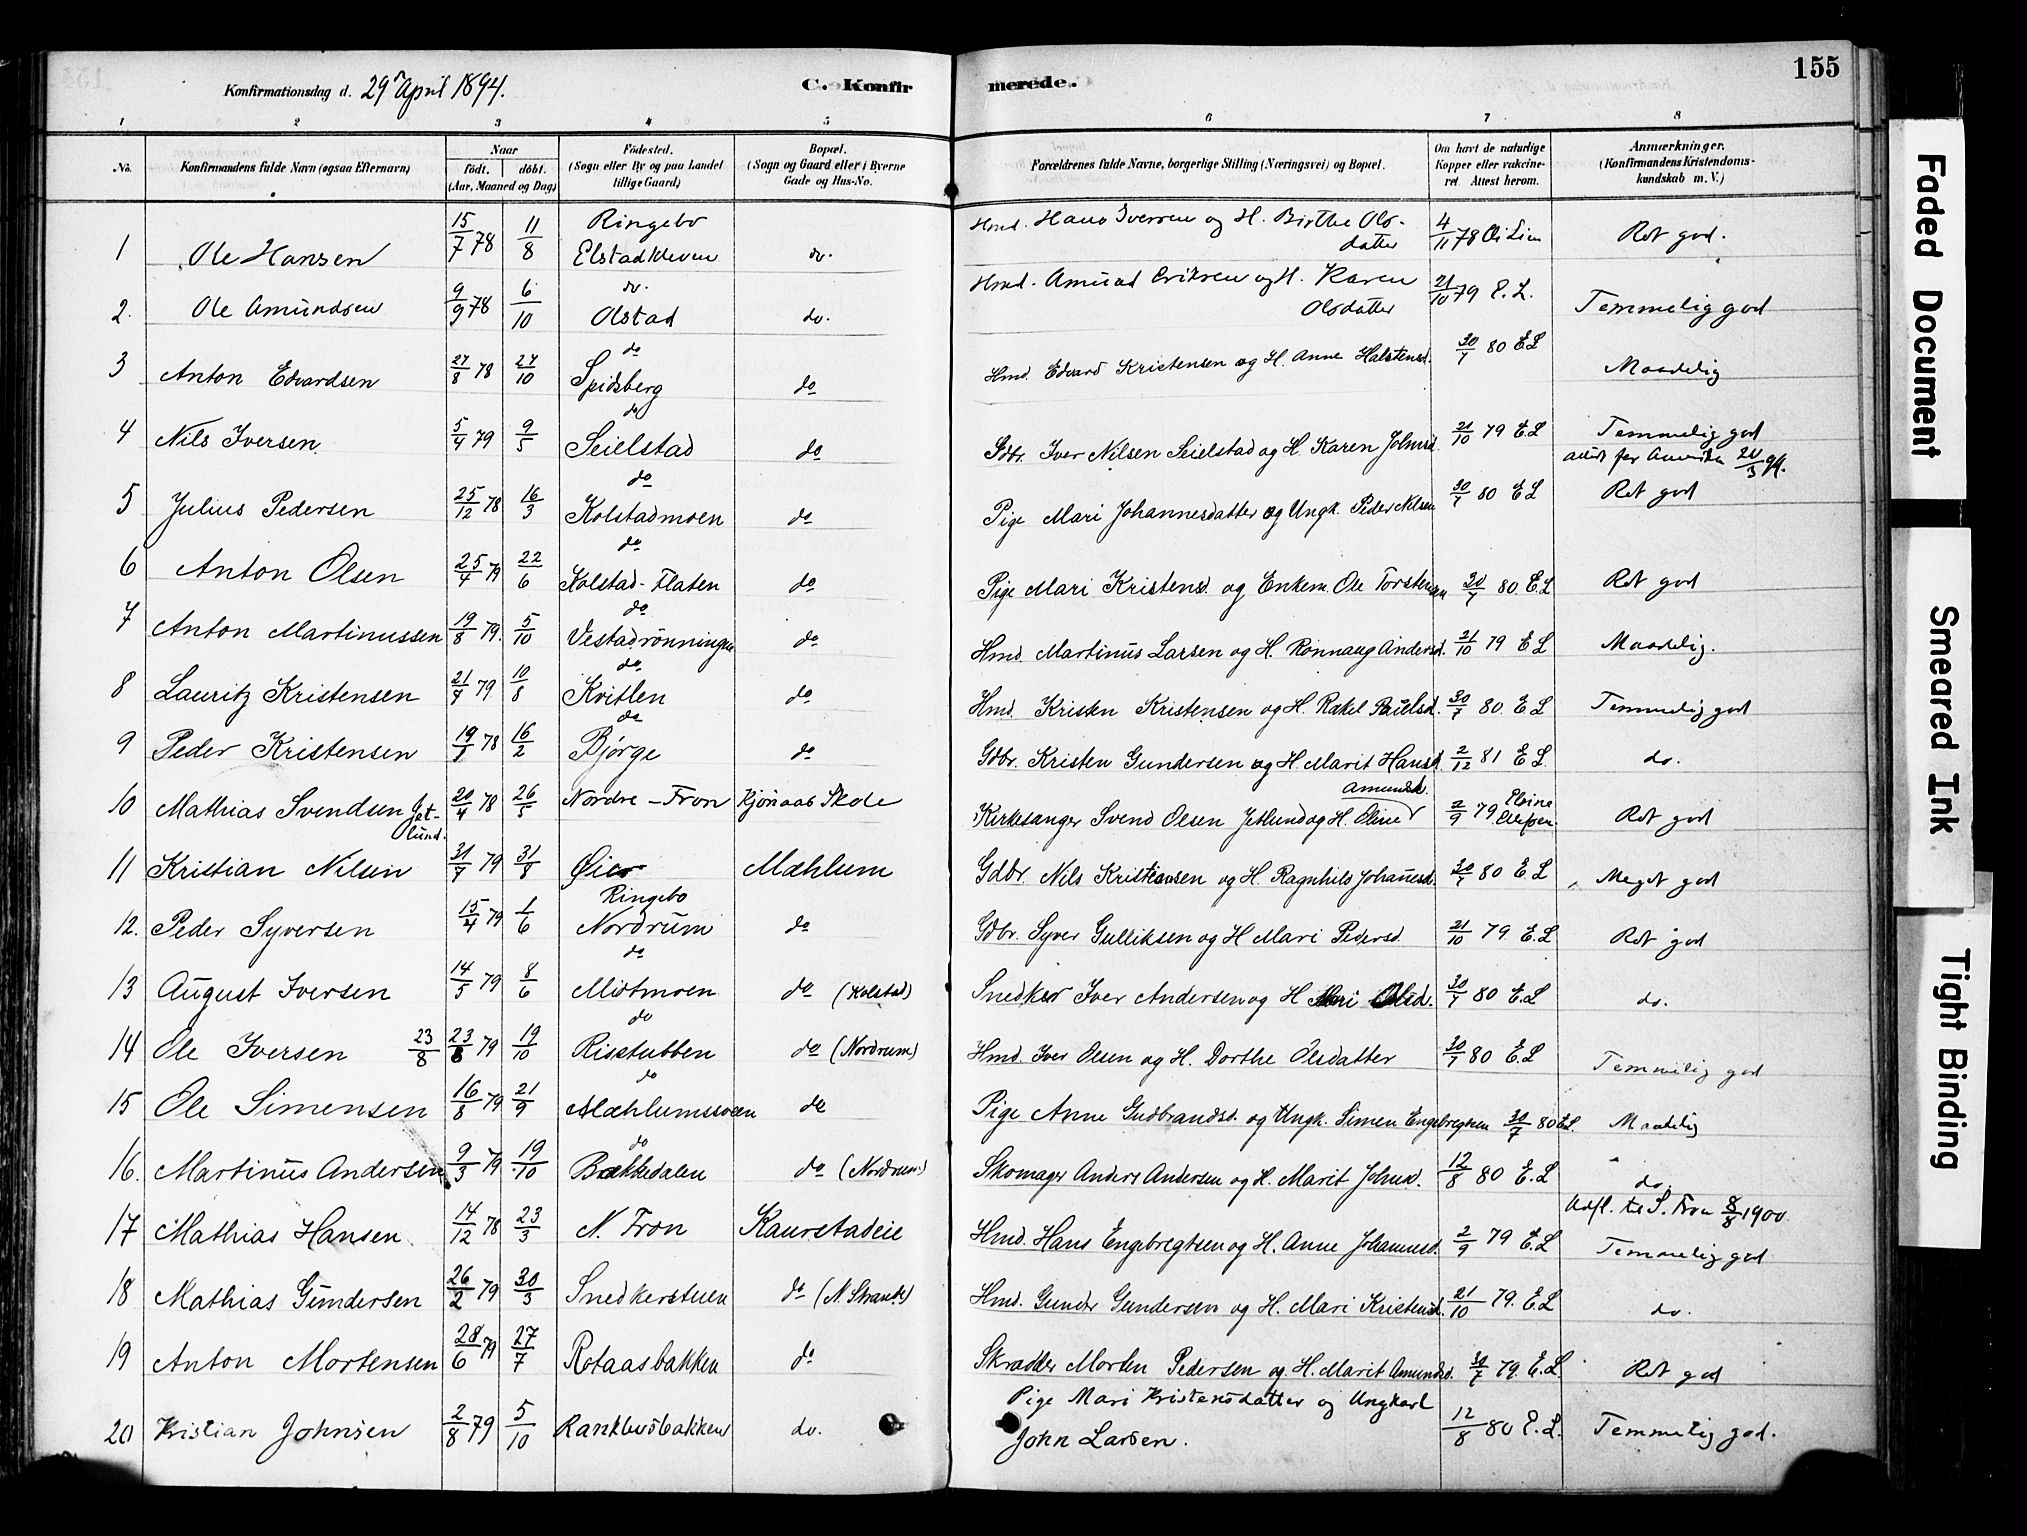 Konfirmationsdag d. 29' April 1894.
C. Konfirmerede.
155
1 2 3 4 5 6 7 8
No.
Konfirmandens fulde Navn (ogsaa Efternavn)
Naar
født. døbt.
(Aar, Maaned og Dag)
Fødested.
(Sogn eller By og paa Landet
tillige Gaard)
Bopæl.
(Sogn og Gaard eller i Byerne
Gade og Hus-No.
Forældrenes fulde Navne, borgerlige Stilling (Næringsvei) og Bopæl.
Om havt de naturlige
Kopper eller vakcine-
ret Attest herom.
Anmærkninger.
(Konfirmandens Kristendoms-
kundskab m. V.)
1 Ole Hansen 15/7 78 11/8 Ringebo Elstadkleven do. Hmd. Hans Iversen og H. Birthe Olsdatter 4/11 78 Ol Lien Ret god.
2. Ole Amundsen 9/9 78 6/10 do. Olstad do. Hmd. Amund Eriksen og H. Karen Olsdatter 21/10 79 E.L. Temmelig god
3 Anton Edvardsen 27/8 78 27/10 do Spidsberg do Hmd. Edvard Kristensen og H. Anne Halstensd. 30/7 80 EL Maadelig
4 Nils Iversen 5/4 79 9/5 do Seielstad do Gdbr. Iver Nilsen Seielstad og H. Karen Johnsd. 21/10 79 E.L Temmelig god
5 Julius Pedersen 25/12 78 16/3 do Kolstadmoen do Pige Mari Johannesdatter og Ungk. Peder Nilsen 30/7 80 EL Ret god
6 Anton Olsen 25/4 79 22/6 do Kolstad-Flaten do Pige Mari Kristensd. og Enkem. Ole Torstensen 30/7 80. E.L Ret god
7 Anton Martinussen 19/8 79. 5/10 do Vestadrönningen do Hmd. Martinus Larsen og H. Rønnaug Andersd. 21/10 79 EL Maadelig.
8 Lauritz Kristensen 21/7 79 10/8 do Kvitlen do Hmd. Kristen Kristensen og H. Rakel Paulsd. 30/7 80. E L Temmelig god
9 Peder Kristensen 19/1 78 16/2 do Bjørge do Gdbr. Kristen Gundersen og H. Marit Hansd. 2/12 81 E L. do.
10 Mathias Svendsen Jetlund. 20/4 78 26/5 Nordre-Fron Kjønaas Skole Kirkesanger Svend Olsen Jetlund og H. Oline Amundsd. 2/9 79 Ret god
11 Kristian Nilsen 31/7 79 31/8 Øier Mæhlum Gdbr. Nils Kristiansen og H. Ragnhild Johannesd. 30/7 80 E L Meget god
12. Peder Syversen 15/4 79 1/6 Ringebo Nordrum do Gdbr. Syver Gulliksen og H Mari Pedersd. 21/10 79 E.L Ret god
13 August Iversen 14/5 79 8/6 do Midtmoen do (Kolstad) Snedker Iver Andersen og H Mari Olsd. 30/7 80 E.L do.
14 Ole Iversen 23/8 23/6 79 19/10 do Risstubben do (Nordrum) Hmd. Iver Olsen og H. Dorthe Olsdatter 30/7 80 E.L Temmelig god
15 Ole Simensen 16/8 79 21/9 do Mæhlumssveen do Pige Anne Gudbrandsd. og Ungk. Simen Engebregtsen 30/7 80 E.L. Maadelig
16. Martinus Andersen 9/3 79 19/10 do Bækkedalen do (Nordrum) Skomager Anders Andersen og H. Marit Johnsd. 12/8 80 E.L do.
17 Mathias Hansen 14/12 78 23/3 N. Fron Kaurstadeie Hmd. Hans Engebregtsen og H. Anne Johannesd. 2/9 79 E.L Udfl. til S. Fron 8/8 1900 Temmelig god
18 Mathias Gundersen 26/2 79 30/3 Snedkerstuen do (N. Strande) Hmd. Gunder Gundersen og H. Mari Kristensd. 21/10 79. E.L do.
19 Anton Mortensen 28/6 79 27/7 Rotaasbakken do Skrædder Morten Pedersen og H. Marit Amundsd. 30/7 79. E.L. Ret god
20 Kristian Johnsen 2/8 79 5/10 Ranklevsbakken do. Pige Mari Kristensdatter og Ungkarl John Larsen. 12/8 80 E.L. Temmelig god.
Faded Document
Smeared Ink
Tight Binding